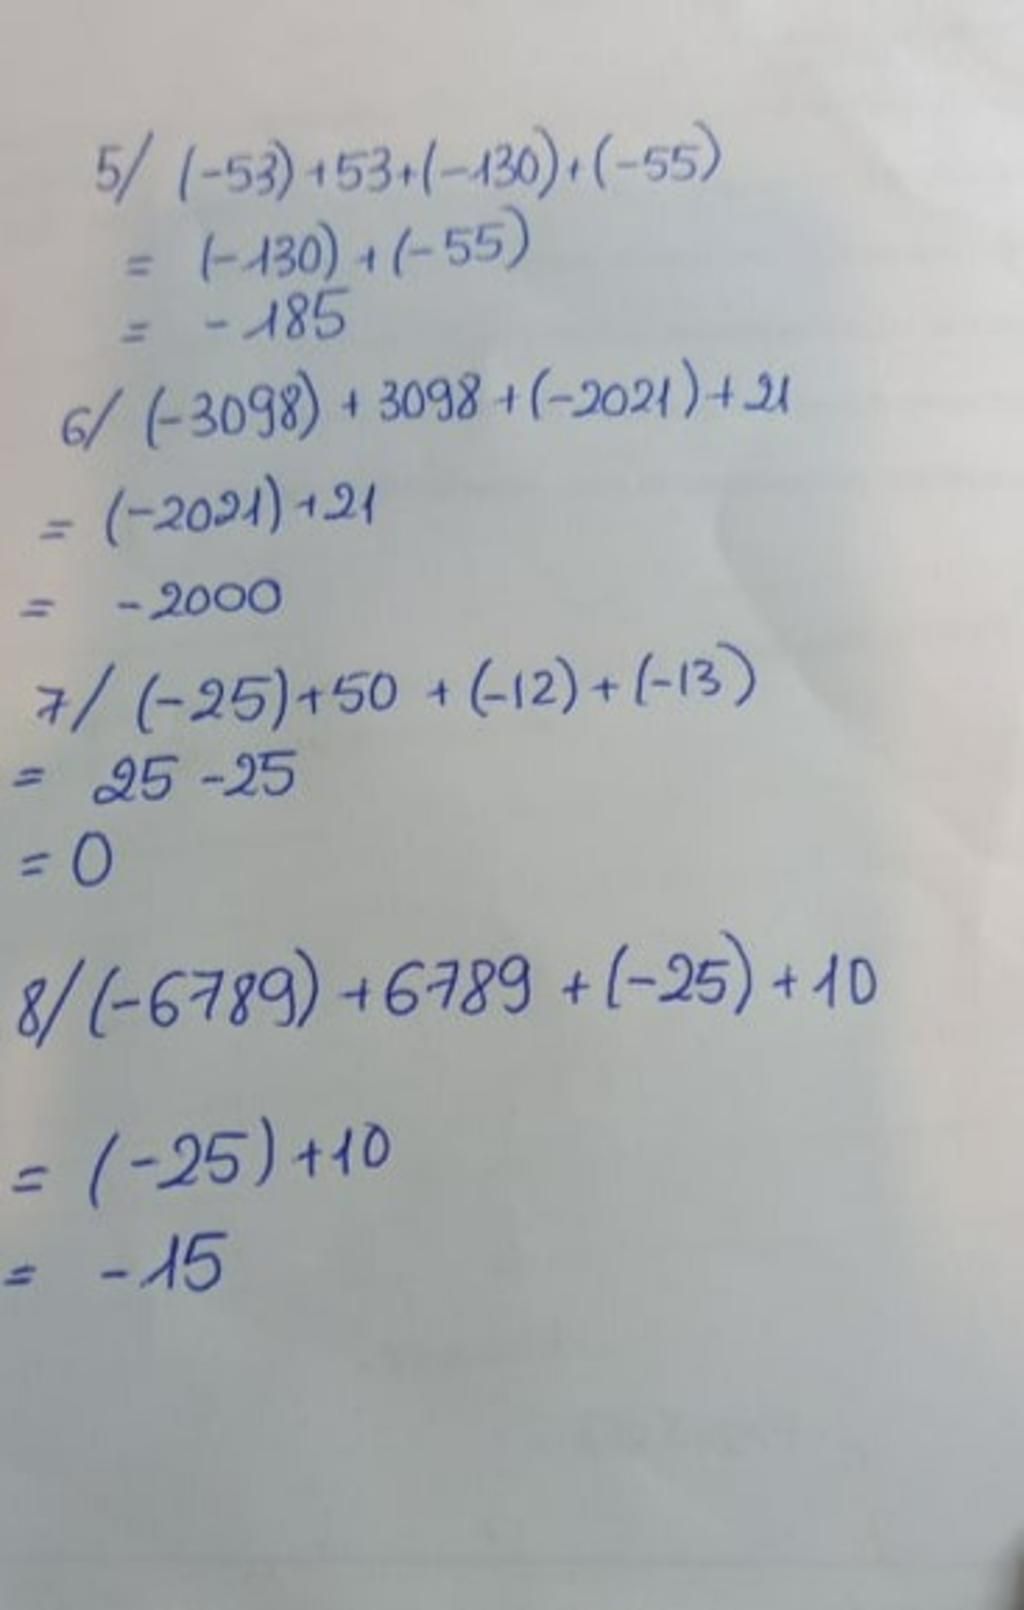 5/ (-53)+53+(-130)+(-55)
= (-130)+(-55)
= -185
6/ (-3098)+3098+(-2021)+21
= (-2021)+21
= -2000
7/ (-25)+50 + (-12)+(-13)
= 25 -25
= 0
8/ (-6789)+6789 + (-25)+10
= (-25)+10
= -15